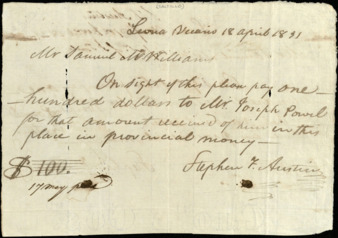 Leona Vicario 18 April 1831
Mr Samuel M Williams
On sight of this please pay one
hundred dollars to Mr. Joseph Powel
for that amount received of him in this
place in provincial money—
Stephen F. Austin
$100.
17 may paid